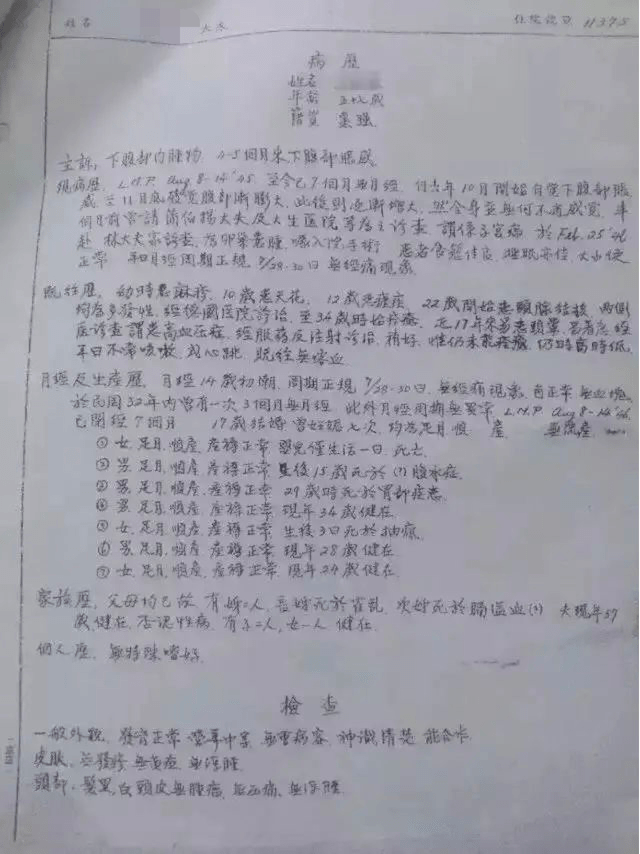 姓名 太太 住院號數 11375
病歷
姓名
年齡 五十七歲
籍貫
主訴, 下腹部內腫物. 4-5個月來下腹部脹感
現病歷, L.M.P. Aug 8-14 '45. 至今已7個月無月經. 付去年10月開始自覺下腹部脹
感 至11月底發覺腹部漸膨大, 此後則逐漸增大, 然全身並無何不適感覺.
個月前曾請 大夫及 醫院 診查 謂係子宮瘤 於Feb. 25 '46
赴 林大夫家診查, 為卵巢囊腫, 囑入院手術 患者食慾佳良, 睡眠亦佳, 大小便
正常 月經周期正規 7/28-30日 無經痛現象.
既往歷, 幼時患麻疹, 10歲患天花, 12歲患瘧疾, 22歲開始患頸腺結核, 兩側
均為多發性, 經德國醫院診治, 至34歲時始痊癒. 近17年來易患頭暈,
應診查謂患高血壓症. 經服藥及注射診治, 稍好, 惟仍未能痊癒, 仍時高時低,
平日不常咳嗽, 或心跳, 既往無嘔血.
月經及生產歷, 月經14歲初潮, 周期正規 7/28-30日. 無經痛現象, 量正常, 無血塊.
於民国32年內曾有一次3個月無月經 此外月經周期無異常. L.M.P. Aug 8-14 '45
已閉經7個月 17歲結婚 曾妊娠七次, 均為足月順產 無流產
① 女. 足月. 順產. 產褥正常 嬰兒僅生活一日. 死亡.
② 男. 足月. 順產. 產褥正常 生後15歲死於(?)腹水症.
③ 男. 足月. 順產. 產褥正常 29歲時死於胃部疾患.
④ 男. 足月. 順產. 產褥正常 現年34歲健在.
⑤ 女. 足月. 順產. 產褥正常. 生後3日死於抽瘋.
⑥ 男. 足月. 順產. 產褥正常. 現年28歲健在.
⑦ 女. 足月. 順產. 產褥正常. 現年24歲健在.
家族歷, 父母均已故. 有姊二人. 長姊死於霍亂, 次姊死於腦溢血(?) 夫現年57
歲健在. 否認性病. 有子二人, 女一人 健在.
個人歷, 無特殊嗜好.
檢查
一般外觀, 發育正常 營養中等, 無重病容. 神識清楚 能合作
皮膚, 無發疹 無黃疸 無浮腫.
頭部, 髮黑, 白 頭皮無腫瘤, 無壓痛, 無浮腫.